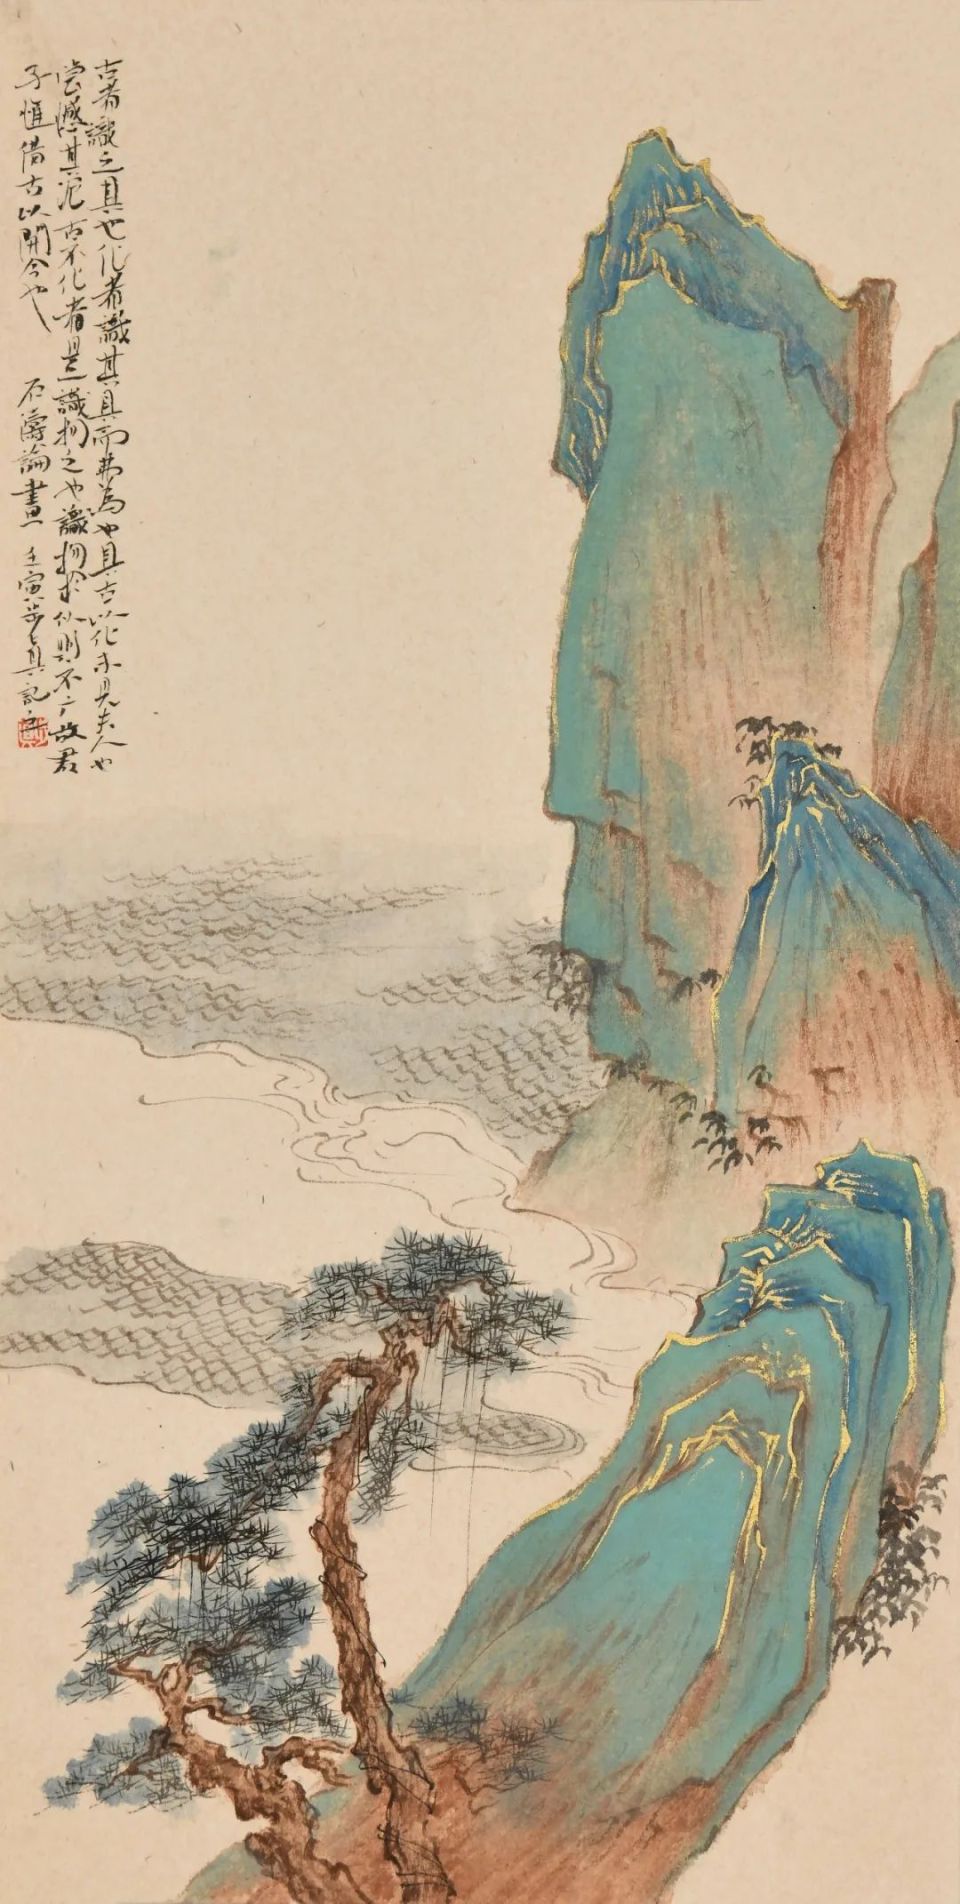 古者識之具也化者識其具而弗為也具古以化未見夫人也
嘗憾其泥古不化者是識拘之也識拘於似則不广故君
子惟借古以開今也 石濤論畫 壬寅 真記